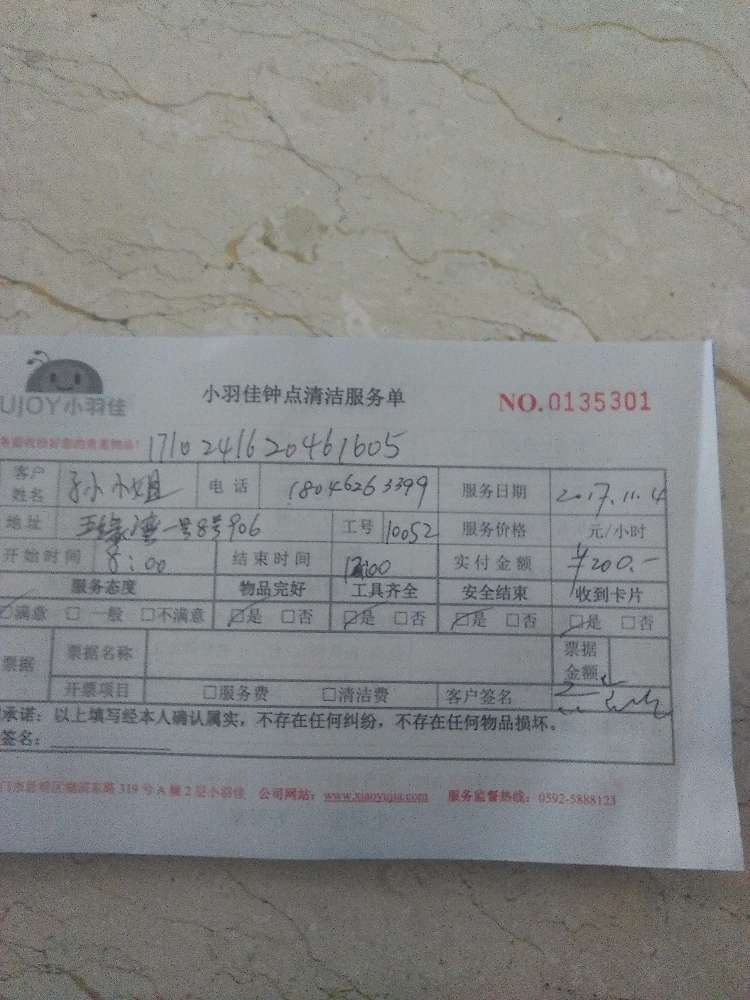 UJOY小羽佳
小羽佳钟点清洁服务单
NO.0135301
1710241620461605
客户姓名 孙小姐 电话 18046263399 服务日期 2017.11.4
地址 一号8号906 工号 10052 服务价格 元/小时
开始时间 8:00 结束时间 12:00 实付金额 ¥200.-
服务态度 物品完好 工具齐全 安全结束 收到卡片
☑满意 □一般 □不满意 ☑是 □否 ☑是 □否 ☑是 □否 ☑是 □否
票据 票据名称 票据金额
开票项目 □服务费 □清洁费 客户签名
承诺：以上填写经本人确认属实，不存在任何纠纷，不存在任何物品损坏。
签名：
门市思明区湖滨东路319号A幢2层小羽佳 公司网站：www.xiaoyujia.com 服务监督热线：0592-5888123